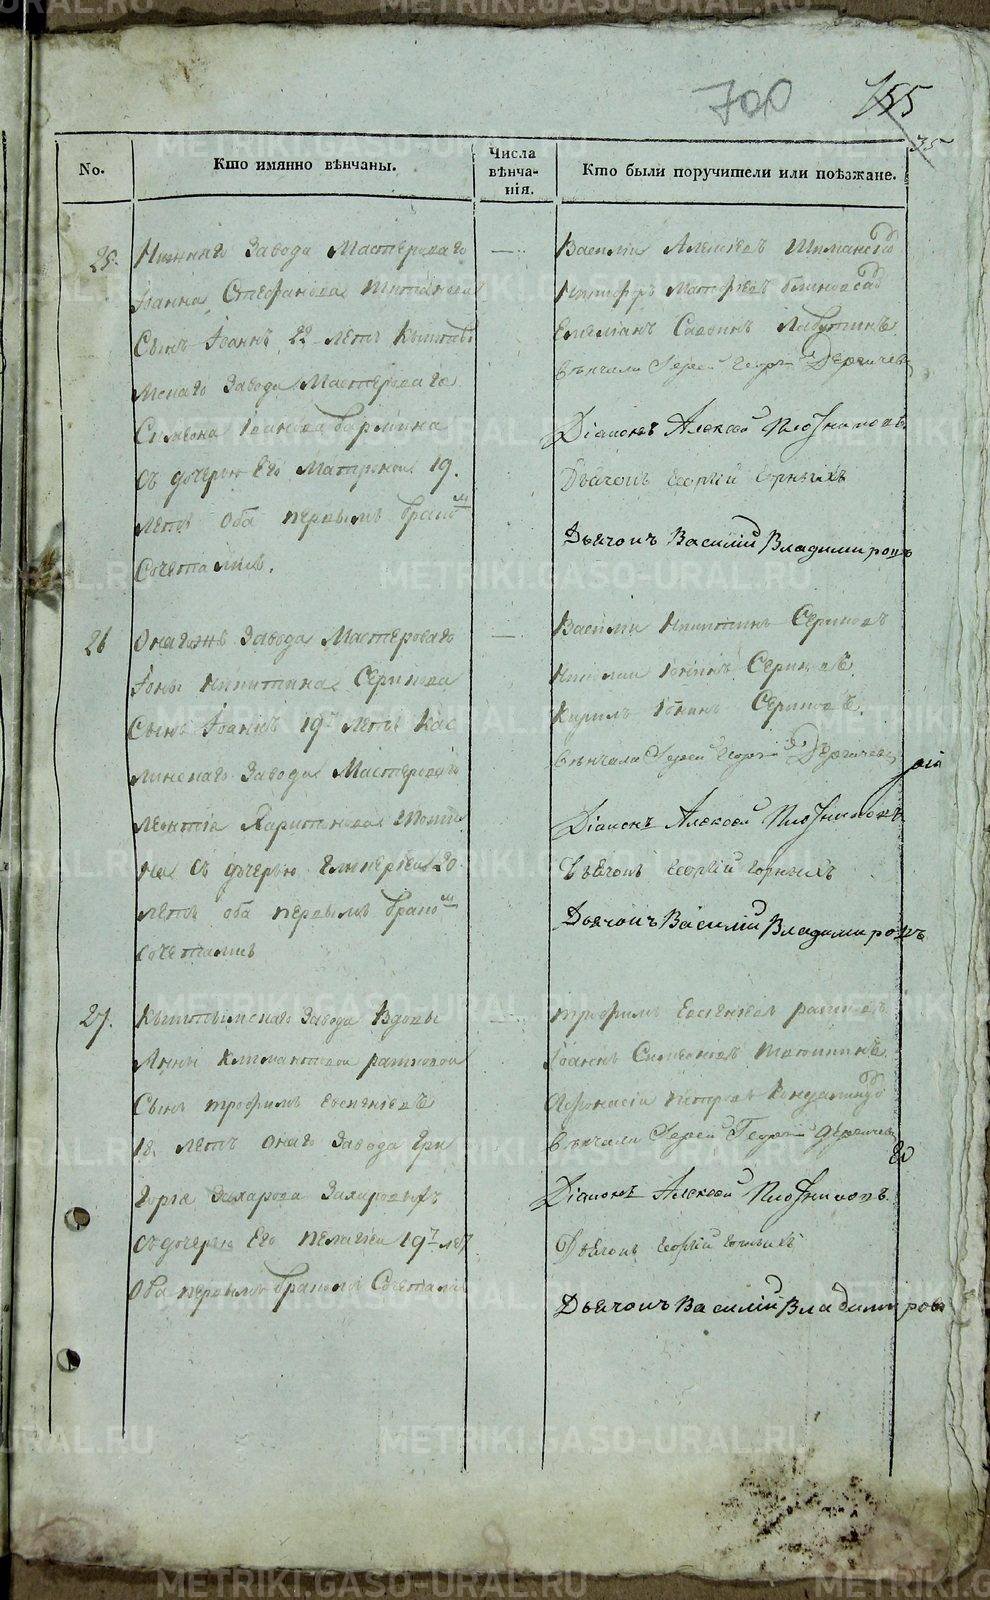 700
155
35
No.
Кто имянно вѣнчаны.
Числа
вѣнча-
нія.
Кто были поручители или поѣзжане.
25.
Нижняго Завода Мастероваго
Іоанна Стефанова
Сынъ Іоаннъ 22 летъ Кышты
мскаго Завода Мастероваго
Симеона Іоанова Бармина
съ дочерью Его Матроною 19.
летъ Оба первымъ бракомъ
Сочетались.
Василій Алексеевъ
Никифоръ Матфѣевъ
Емеліанъ Саввинъ
Вѣнчали Іерей Георгій Дерягичевъ
Діаконъ Алексей Плотниковъ
Дьячокъ Георгій Горныхъ
Дьячокъ Василій Владимировъ
26
Онагожъ Завода Мастероваго
Іоны Никитина Серикова
Сынъ Іоаннъ 19 летъ Кас
линскаго Завода Мастероваго
Леонтія Харитонова
на съ дочерью 20
летъ оба первымъ бракомъ
сочетались
Василій Никитинъ Сериковъ
Николай Іонинъ Сериковъ
Кирилъ Іонинъ Сериковъ.
Вѣнчали Іерей Георгій Дерягичевъ
Діаконъ Алексей Плотниковъ
Дьячокъ Георгій Горныхъ
Дьячокъ Василій Владимировъ
27.
Кыштымскаго Завода Вдовы
Анны Климантовой
Сынъ Трофимъ Евсигнѣевъ
18. летъ Онаго Завода Гри
горья Захарова Захаровыхъ
съ дочерью Его Пелагіею 19 летъ
Оба первымъ бракомъ Сочетались
Трофимъ
Іоаннъ Симеоновъ
Афонасій Петровъ
Вѣнчали Іерей Георгій Дерягичевъ
Діаконъ Алексей Плотниковъ
Дьячокъ Георгій Горныхъ
Дьячокъ Василій Владимировъ
METRIKI.GASO-URAL.RU